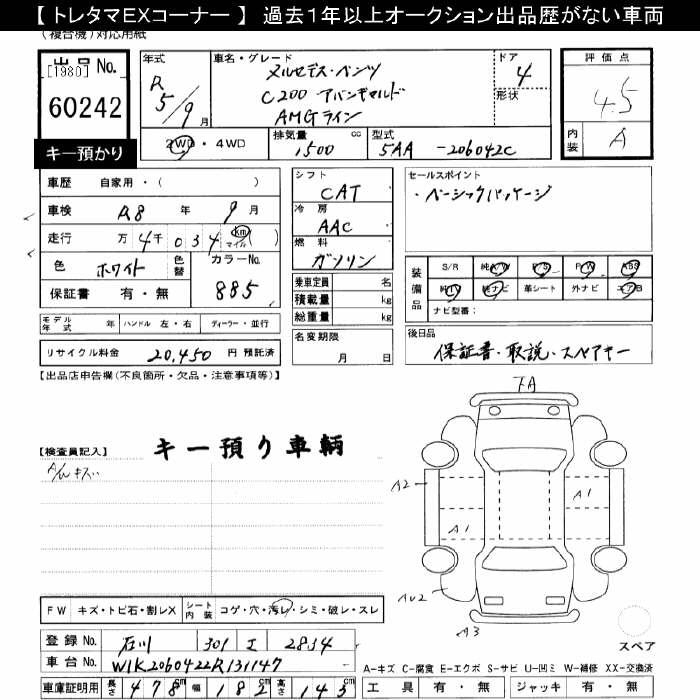 【 トレタマEXコーナー 】 過去１年以上オークション出品歴がない車両
(複合機)対応用紙
出品 No.
[1980]
60242
キー預かり
年式
R
5/9月
車名・グレード
メルセデス・ベンツ
C200 アバンギャルド
AMGライン
ドア
4
形状
2WD ・ 4WD
排気量
1500 cc
型式
5AA -206042C
評価点
4.5
内装
A
車歴 自家用・( )
車検 R8 年 9 月
走行 万 4 千 0 3 4 km マイル ( )
色 ホワイト 色替
カラーNo.
885
保証書 有・無
シフト
CAT
冷房
AAC
燃料
ガソリン
乗車定員 名
積載量 kg
総重量 kg
セールスポイント
・ベーシックパッケージ
装備品
S/R 純A/W P/S P/W ABS
純TV 純ナビ 革シート 外ナビ エアB
ナビ型番：
モデル年式 年 ハンドル 左・右 ディーラー・並行
リサイクル料金 20,450 円 預託済
名変期限
月 日
後日品
保証書・取説・スペアキー
【出品店申告欄(不良箇所・欠品・注意事項等)】
【検査員記入】
キー預り車輌
A/Wキズ
FA
A2
A1
A1
AU2
A3
スペア
FW キズ・トビ石・割レX シート内装 コゲ・穴・汚レ・シミ・破レ・スレ
登録 No. 石川 301 2834
車台 No. W1K2060422R131147
車庫証明用 長さ 478 cm 幅 182 cm 高さ 143 cm
A-キズ C-腐食 E-エクボ S-サビ U-凹ミ W-補修 XX-交換済
工具 有・無 ジャッキ 有・無